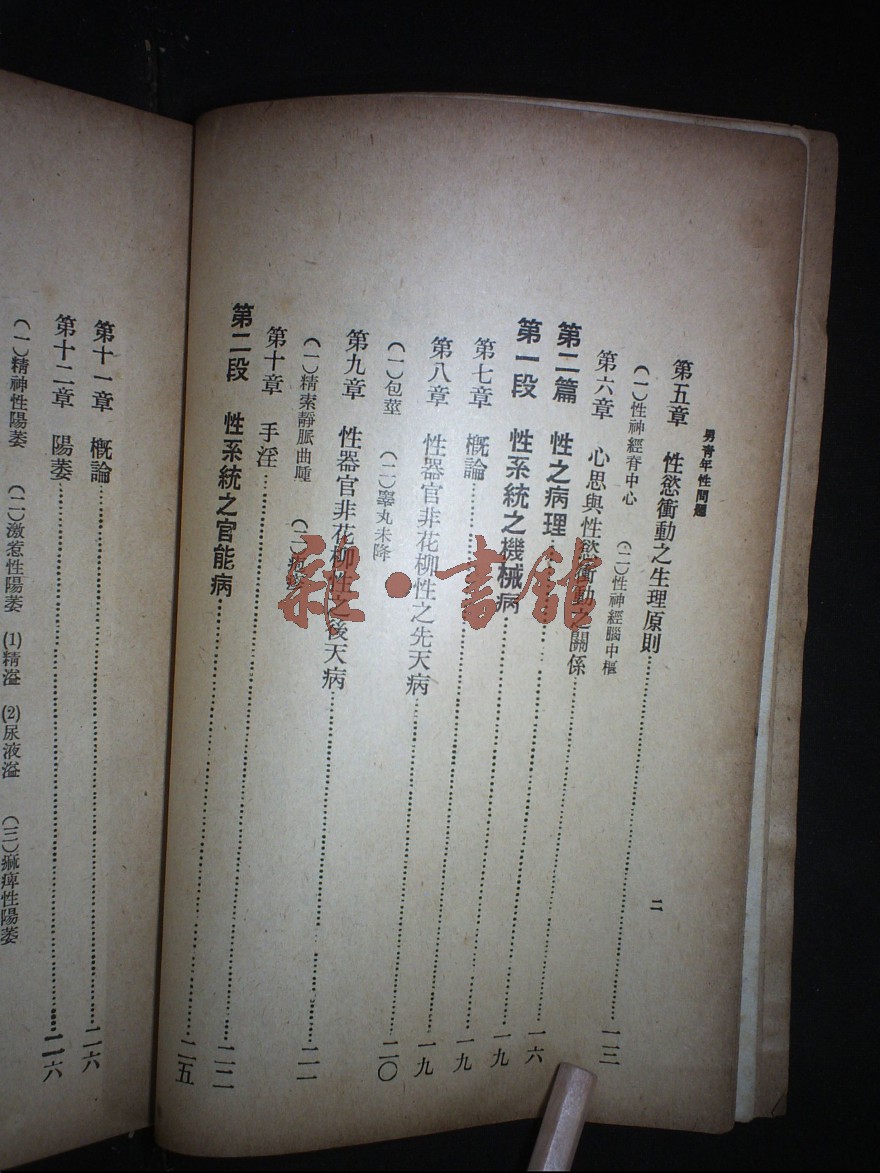 男青年性問題 二
第五章 性慾衝動之生理原則……一三
(一)性神經脊中心 (二)性神經腦中樞
第六章 心思與性慾衝動之關係……一六
第二篇 性之病理……一九
第一段 性系統之機械病……一九
第七章 概論……一九
第八章 性器官非花柳性之先天病……二〇
(一)包莖 (二)睾丸未降
第九章 性器官非花柳性之後天病……二一
(一)精索靜脈曲腫 (二)
第十章 手淫……二二
第二段 性系統之官能病……二五
第十一章 概論……二六
第十二章 陽萎……二六
(一)精神性陽萎 (二)激惹性陽萎 (1)精溢 (2)尿液溢 (三)痲痺性陽萎
雜·書館